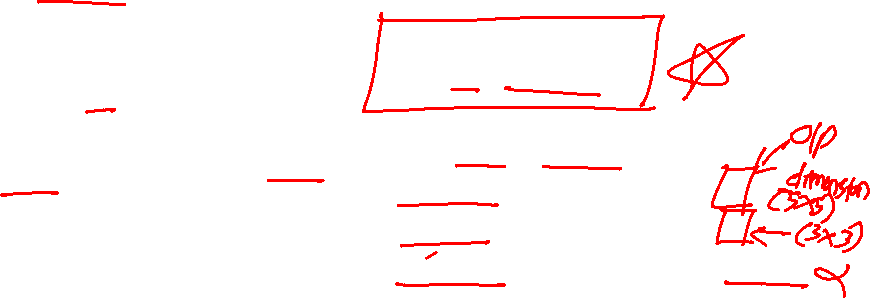 o/p
dimension
(3x3)
(3x3)
α